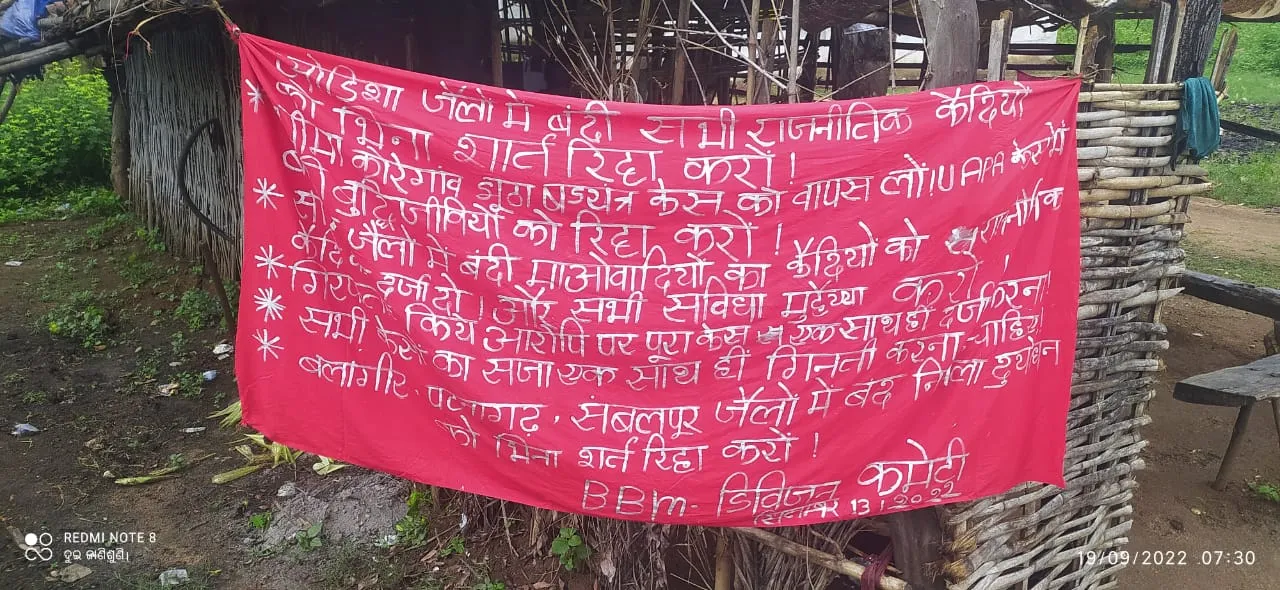 ओडिशा जेलो मे बंदी सभी राजनीतिक कैदियों
* को भिना शार्त रिहा करों !
भीमा कोरेगांव झूठा षडयंत्र केस को वापस लों। UAPA केस में
* बुद्धिजीवियों को रिहा करो !
जैलों में बंदी माओवादियों का कैदियो को राजनीतिक
* दर्जा दो। और सभी सविधा मुहैय्या करो !
* गिरफ्त किये आरोपि पर पूरा केस एक साथ ही दर्ज करना।
* सभी केसों का सजा एक साथ ही गिनती करना चाहिये।
बलांगीर. पदमागढ़. संबलपुर जैलों में बंद दुर्योधन
को भिना शर्त रिहा करों !
BBm- डिविजन कमेटी
13 । २०२२
REDMI NOTE 8
ଦୁଇ ଜାଣିଶୁଣି।
19/09/2022 07:30